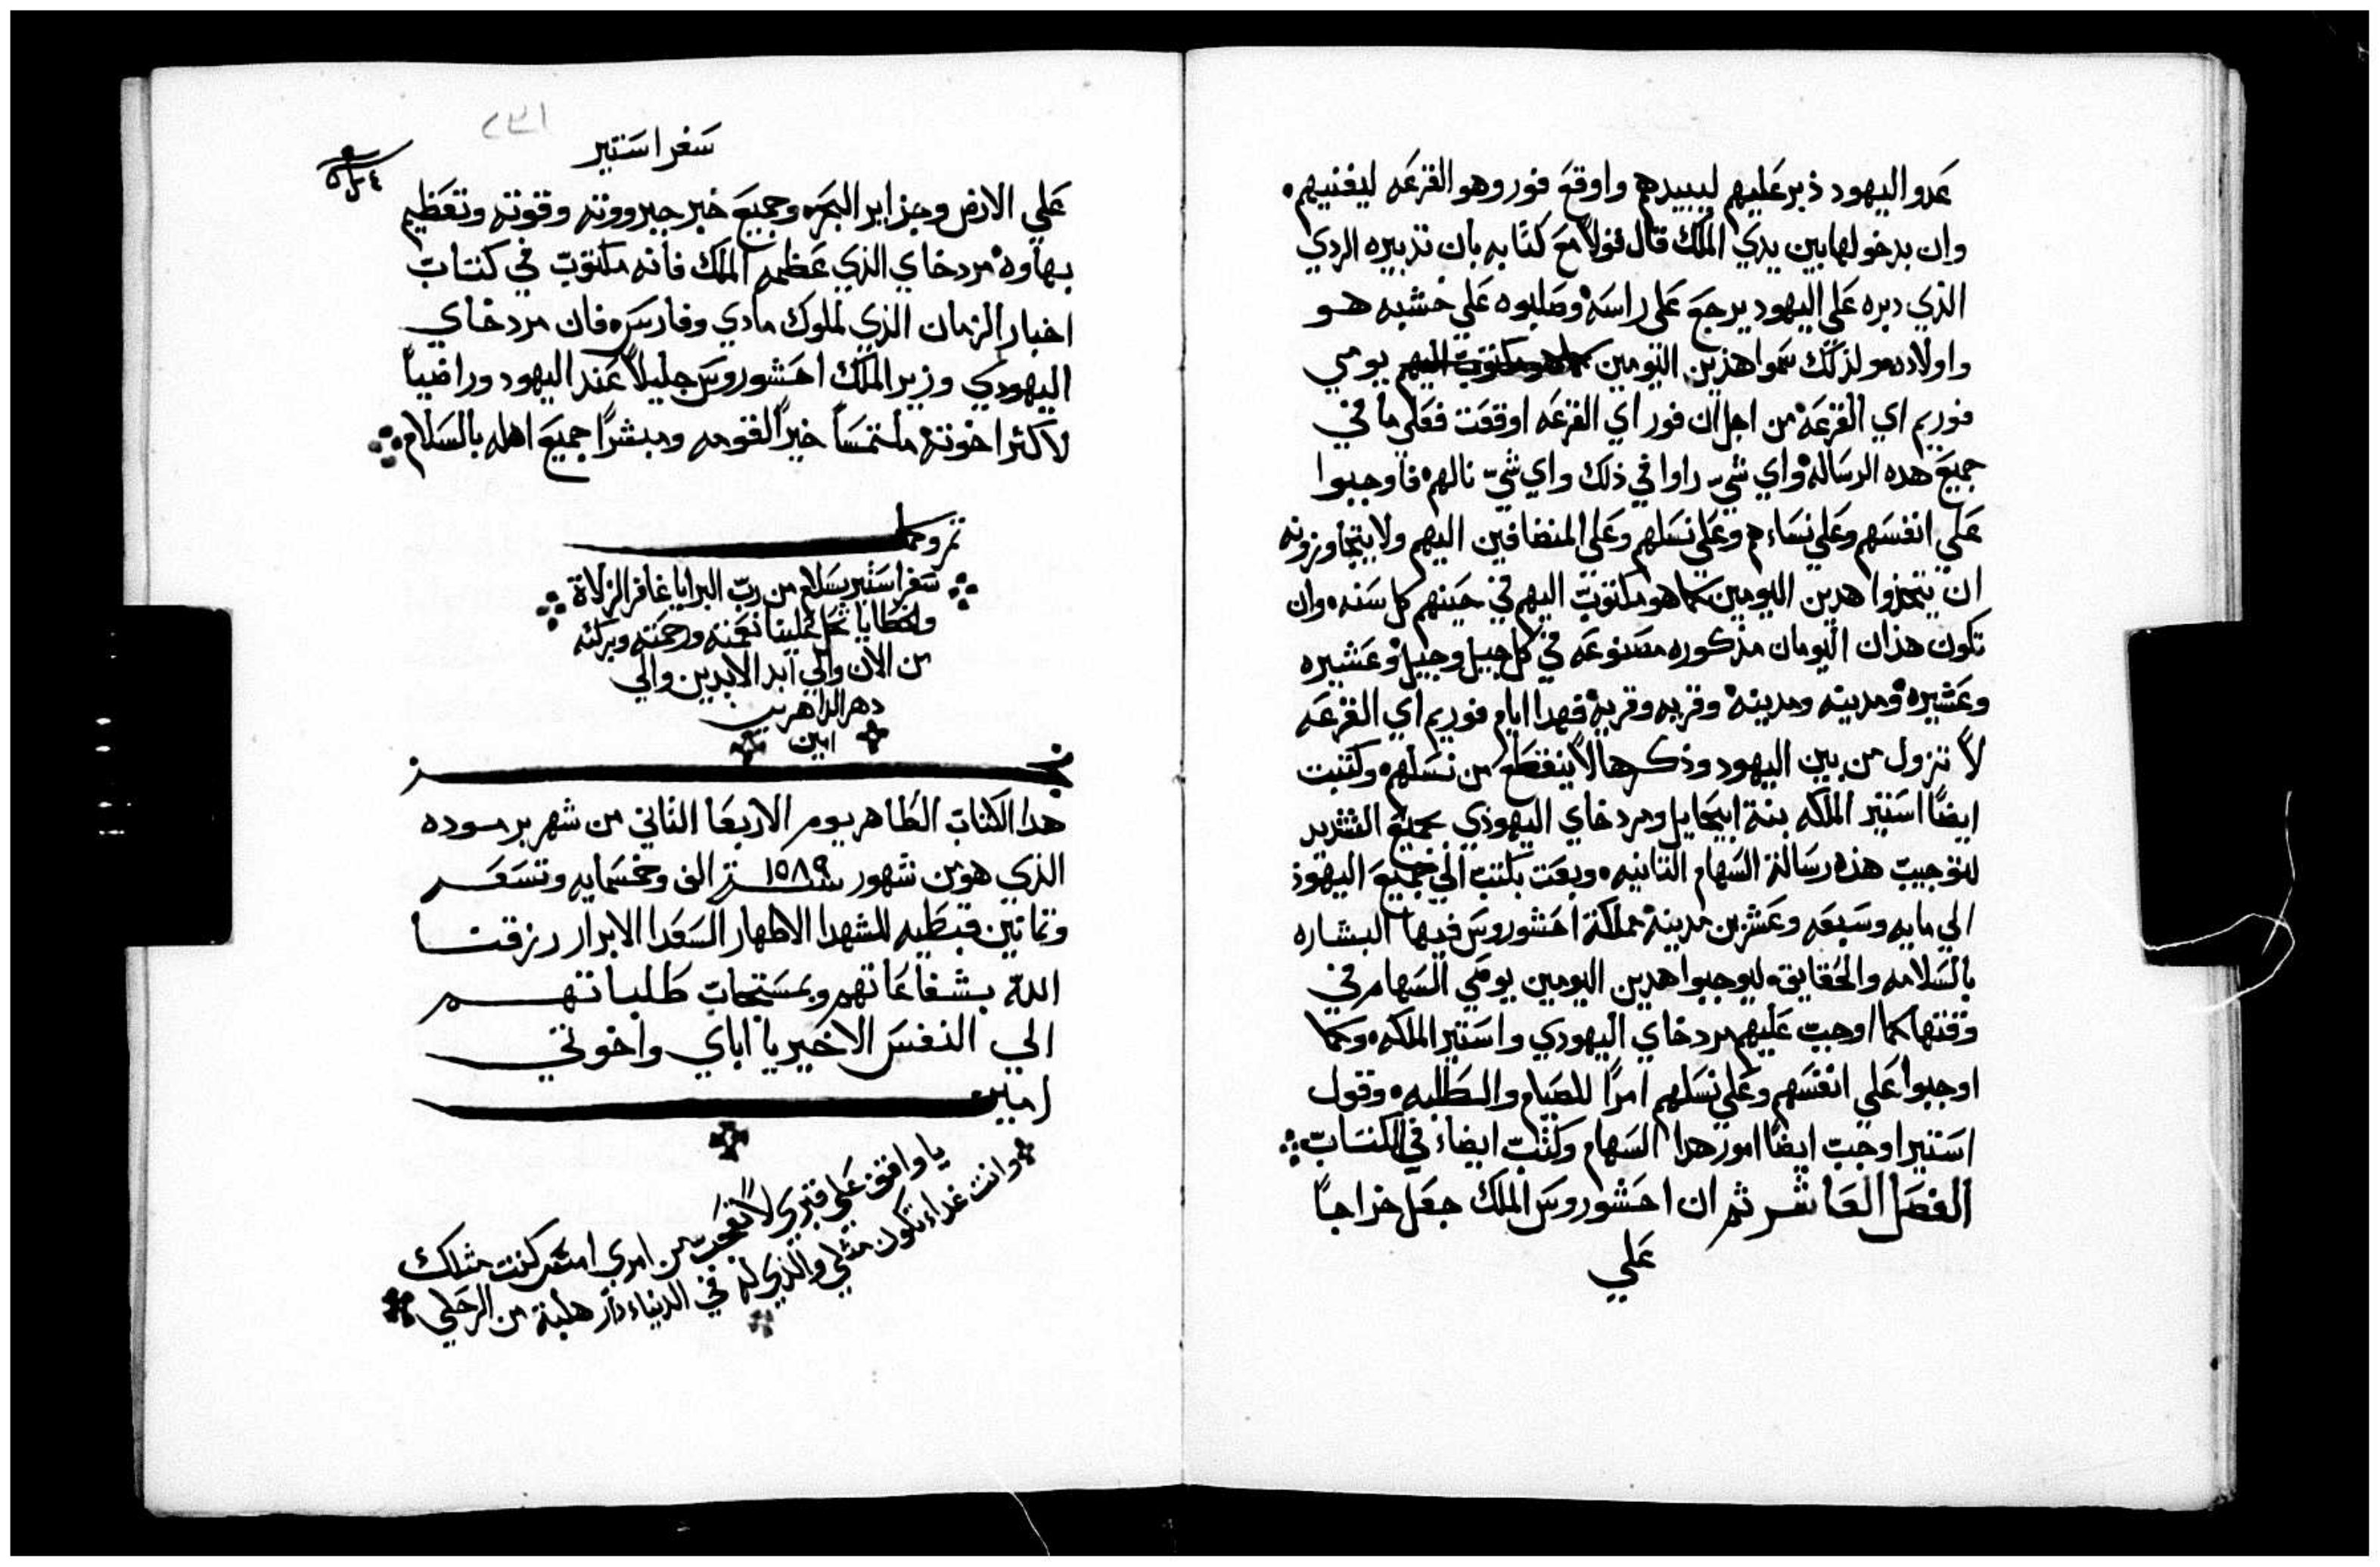 عدو اليهود دبر عليهم ليبيدهم واوقع فور وهو القرعه ليفنيهم
وان بدخولها بين يدي الملك قال قولاً مع كتابه بان تدبيره الردي
الذي دبره علي اليهود يرجع علي راسه وصلبوه علي خشبه هو
واولاده ولذلك سموا هذين اليومين كما هو مكتوب اليهم يومي
فوريم اي القرعه من اجل ان فور اي القرعه اوقعت فعلي ما في
جميع هده الرساله واي شي راوا في ذلك واي شي نالهم فاوجبوا
علي انفسهم وعلي نساءهم وعلي نسلهم وعلي المنضافين اليهم ولا يتجاوزونه
ان يتخذوا هدين اليومين كما هو مكتوب اليهم في حينهم كل سنه وان
تكون هذان اليومان مذكوره مصنوعه في كل جيل وجيل وعشيره
وعشيره ومدينه ومدينه وقريه وقريه فهدا ايام فوريم اي القرعه
لا تزول من بين اليهود وذكرها لا ينقطع من نسلهم وكتبت
ايضاً استير الملكه بنة ابيحايل ومردخاي اليهودي بجميع التشديد
لتوجيب هذه رسالة السهام التانيه وبعت بكتب الي جميع اليهود
الي مايه وسبعه وعشرين مدينة مملكة احشوروس فيها البشاره
بالسلامه والحقايق ليوجبوا هدين اليومين يومي السهام في
وقتها كما اوجب عليهم مردخاي اليهودي واستير الملكه وكما
اوجبوا علي انفسهم وعلي نسلهم امراً للصيام والطلبه وقول
استير اوجب ايضاً امور هدا السهام وكتب ايضاً في الكتاب
الفصل العاشر ثم ان احشوروس الملك جعل خراجاً
علي
٢٣١
سفر استير
علي الارض وجزاير البحر وجميع خبر جبرووته وقوته وتعظيم
بهاوه مردخاي الذي عظمه الملك فانه مكتوب في كتاب
اخبار الزمان الذي لملوك مادي وفارس فان مردخاي
اليهودي وزير الملك احشوروس جليلاً عند اليهود وراضياً
لاكثر اخوته ملتمساً خيراً لقومه ومبشراً جميع اهله بالسلام
تم وكمل
سفر استير بسلام من رب البرايا غافر الزلاة
والخطايا علينا نعمته ورحمته وبركته
من الان والي ابد الابدين والي
دهر الداهرين
امين
هدا الكتاب الطاهر يوم الاربعا التاني من شهر برموده
الذي هو من شهور سنة ١٥٨٩ الف وخمسمايه وتسعه
وتمانين قبطيه للشهدا الاطهار السعدا الابرار رزقنا
الله بشفاعاتهم وبمستجاب طلباتهم
الي النفس الاخير يا اباي واخوتي
امين
يا واقف علي قبري لا تعجب من امري امس كنت مثلك
وانت غداً تكون مثلي والذي له في الدنياء دار